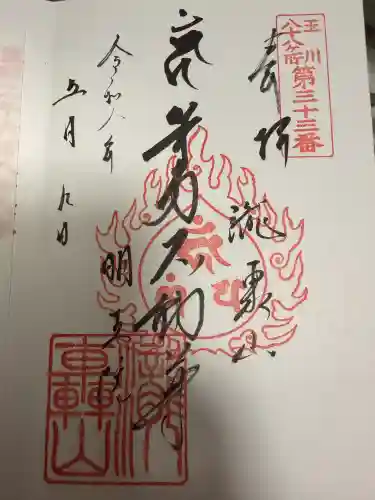 玉川
八十八ヶ所
第三十三番
奉拝
瀧轟山
等々力不動尊
明王院
令和八年
五月九日
瀧轟山